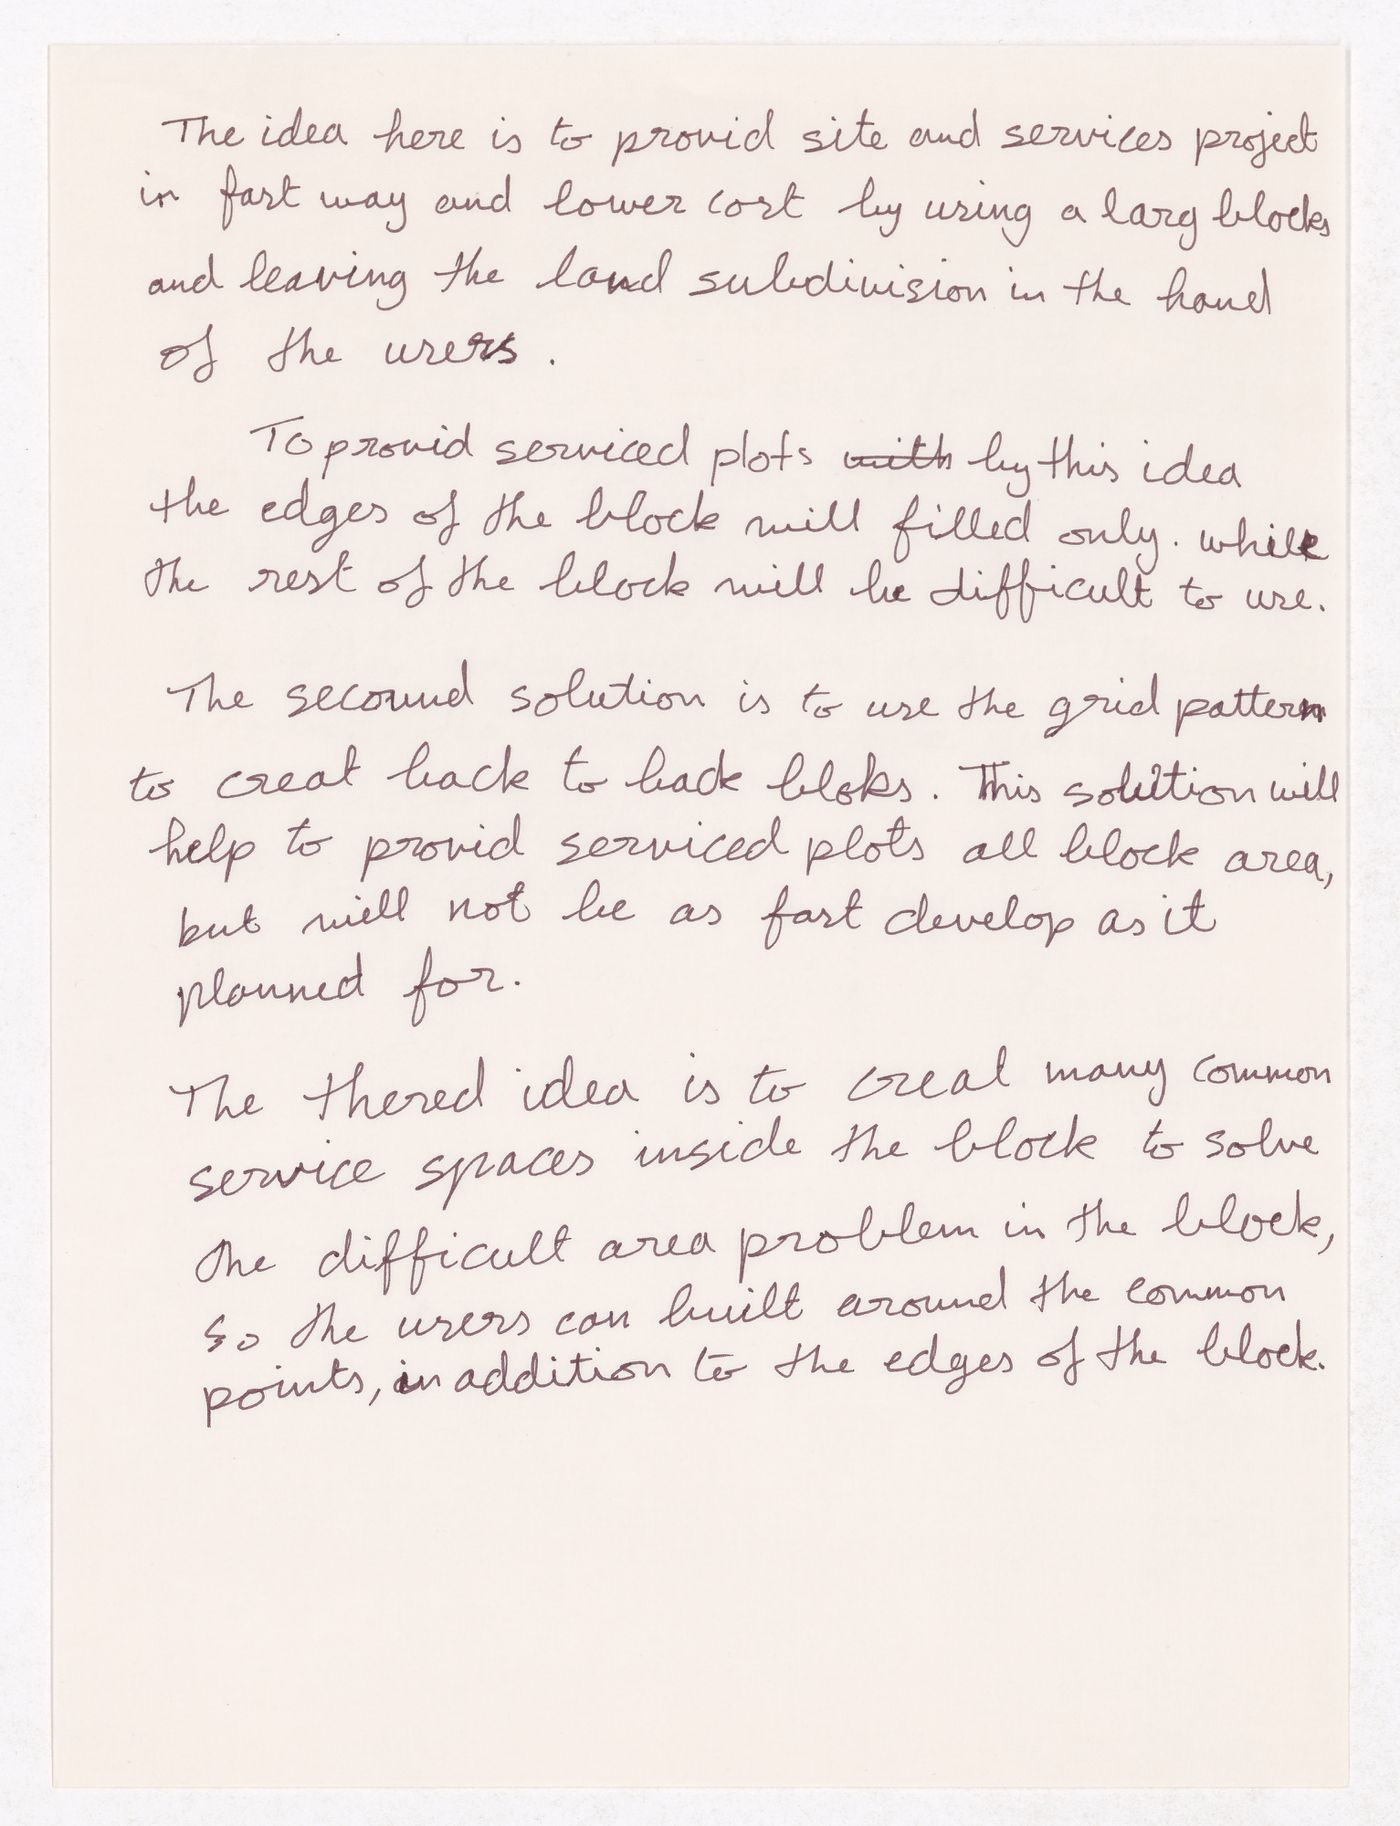 The idea here is to provid site and services project
in fast way and lower cost by using a larg blocks
and leaving the land subdivision in the hand
of the users.
To provid serviced plots with by this idea
the edges of the block will filled only. while
the rest of the block will be difficult to use.
The secound solution is to use the grid pattern
to creat back to back bloks. This solution will
help to provid serviced plots all block area,
but will not be as fast develop as it
planned for.
The thered idea is to creat many common
service spaces inside the block to solve
the difficult area problem in the block,
so the users can built around the common
points, in addition to the edges of the block.